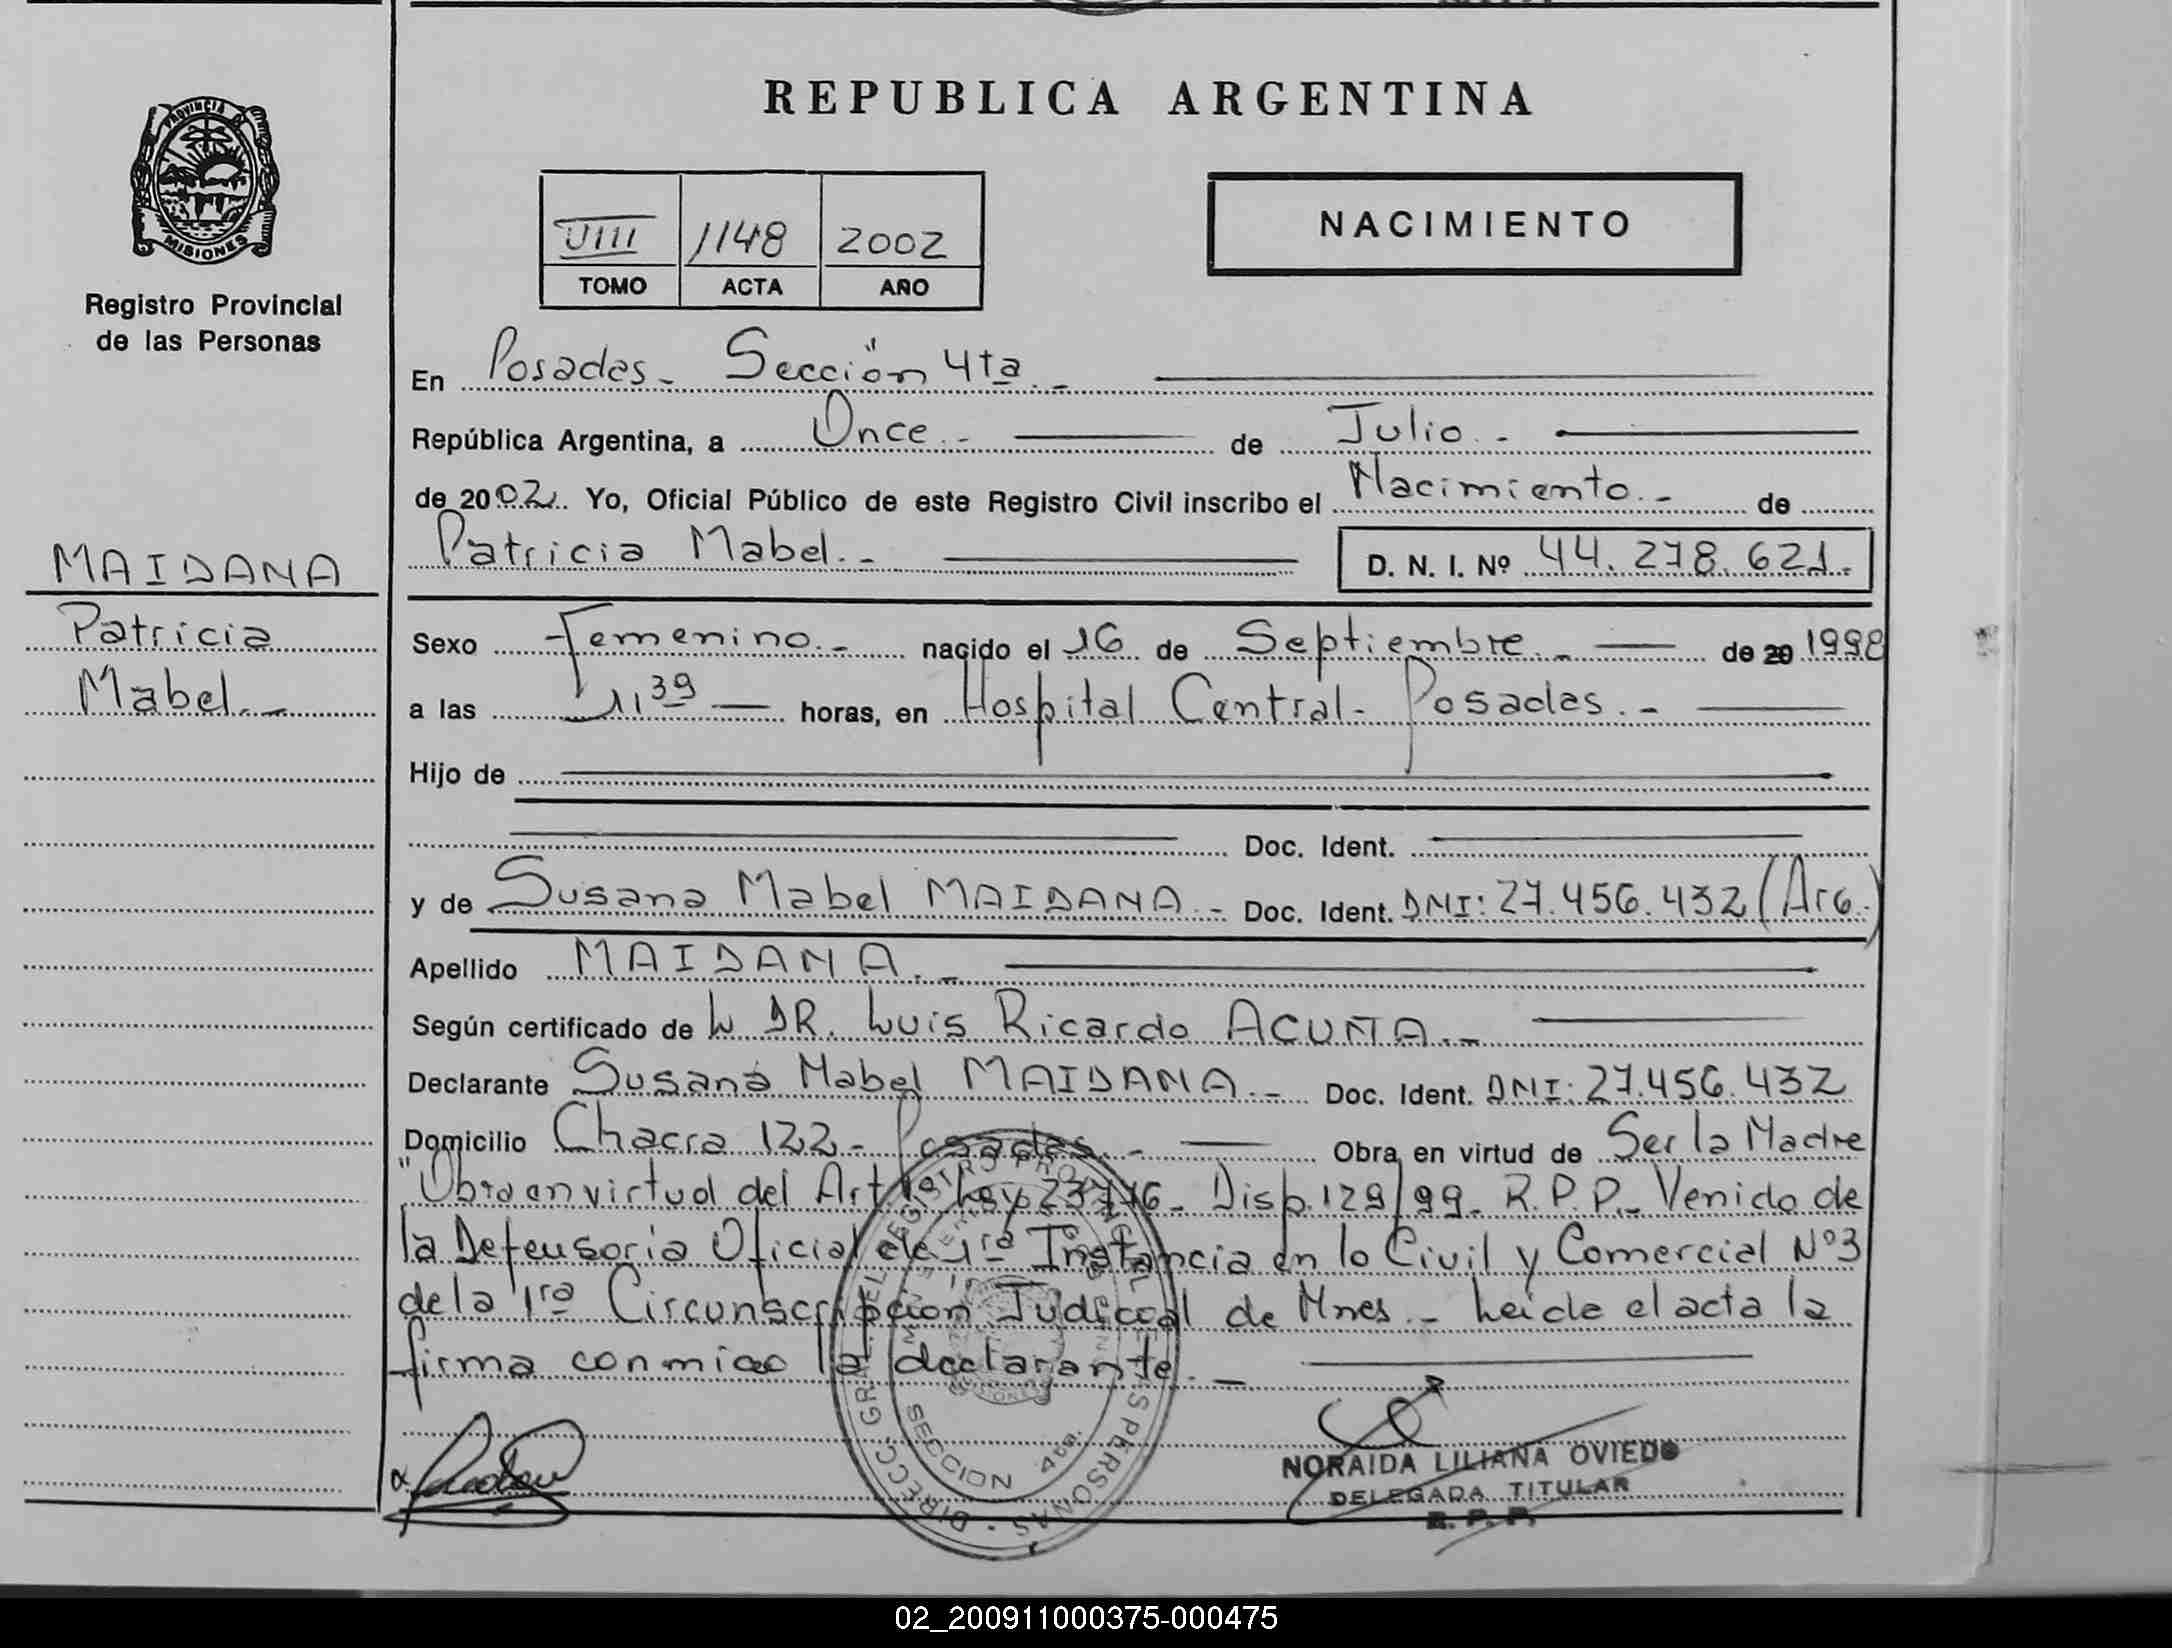 REPUBLICA ARGENTINA
PROVINCIA DE
MISIONES
Registro Provincial
de las Personas
VIII 1148 2002
TOMO ACTA AÑO
NACIMIENTO
En Posadas - Sección 4ta. -
República Argentina, a Once. - de Julio. -
de 2002. Yo, Oficial Público de este Registro Civil inscribo el Nacimiento. - de
Patricia Mabel. - D. N. I. Nº 44.278.621.
MAIDANA
Patricia
Mabel. -
Sexo Femenino. - nacido el 16 de Septiembre. - de 20 1998
a las 11 39 horas, en Hospital Central - Posadas. -
Hijo de
Doc. Ident.
y de Susana Mabel MAIDANA. - Doc. Ident. DNI: 27.456.432 (Arg.)
Apellido MAIDANA. -
Según certificado de DR. Luis Ricardo ACUÑA. -
Declarante Susana Mabel MAIDANA. - Doc. Ident. DNI: 27.456.432
Domicilio Chacra 122 - Posadas. - Obra en virtud de Ser la Madre
"Obra en virtud del Art Ley - Disp. 129/99 - R.P.P. - Venido de
la Defensoria Oficial de 1ra Instancia en lo Civil y Comercial Nº 3
de la 1ra Circunscripcion Judicial de Mnes. - Leida el acta la
firma conmigo la declarante. -
DIRECC. GRAL. DEL REGISTRO PROVINCIAL DE LAS PERSONAS
SECCION 4ta.
NORAIDA LILIANA OVIEDO
DELEGADA TITULAR
R. P. P.
02_200911000375-000475